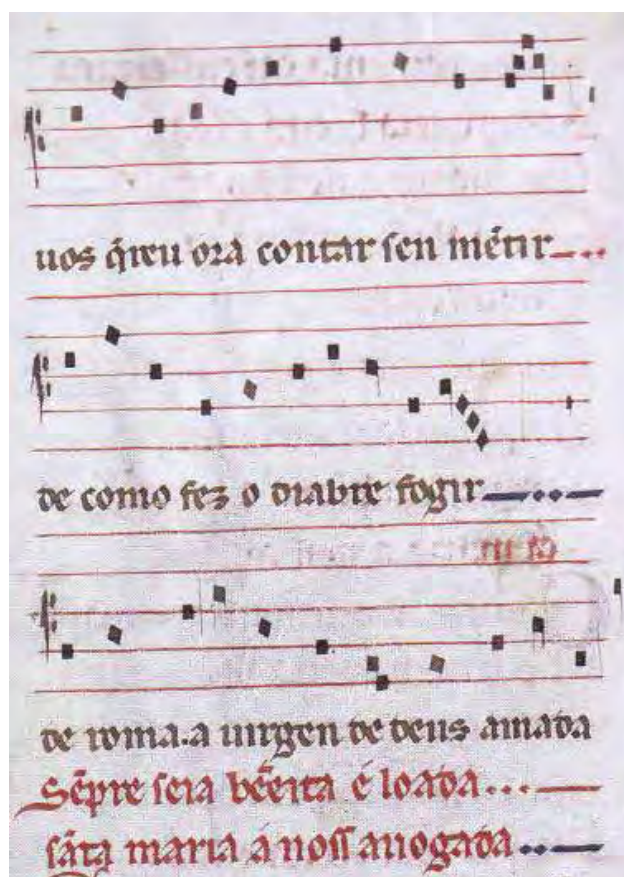 uos q̄reu ora contar sen mētir
de como fez o diabre fogir
de roma.a uirgen de deus amada
Sēpre seia bēeita e loada...
sāta maria a noss auogada